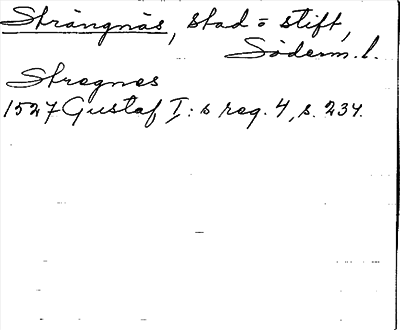 Strängnäs, stad o stift,
Söderm. l.
Stregnes
1527 Gustaf I:s reg. 4, s. 234.